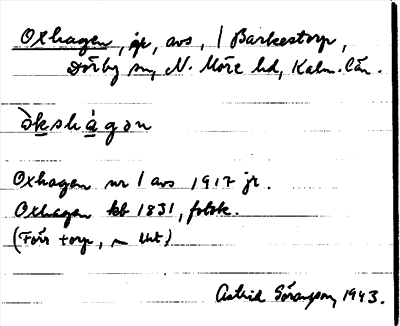 Oxhagen, gr, avs, / Barkestorp,
Dörby sn, N. Möre hd, Kalm. län.
òkshàgən
Oxhagen nr 1 avs 1917 jr.
Oxhagen kb 1831, folok.
(Förr torp, n Utt)
Astrid Göransson 1943.